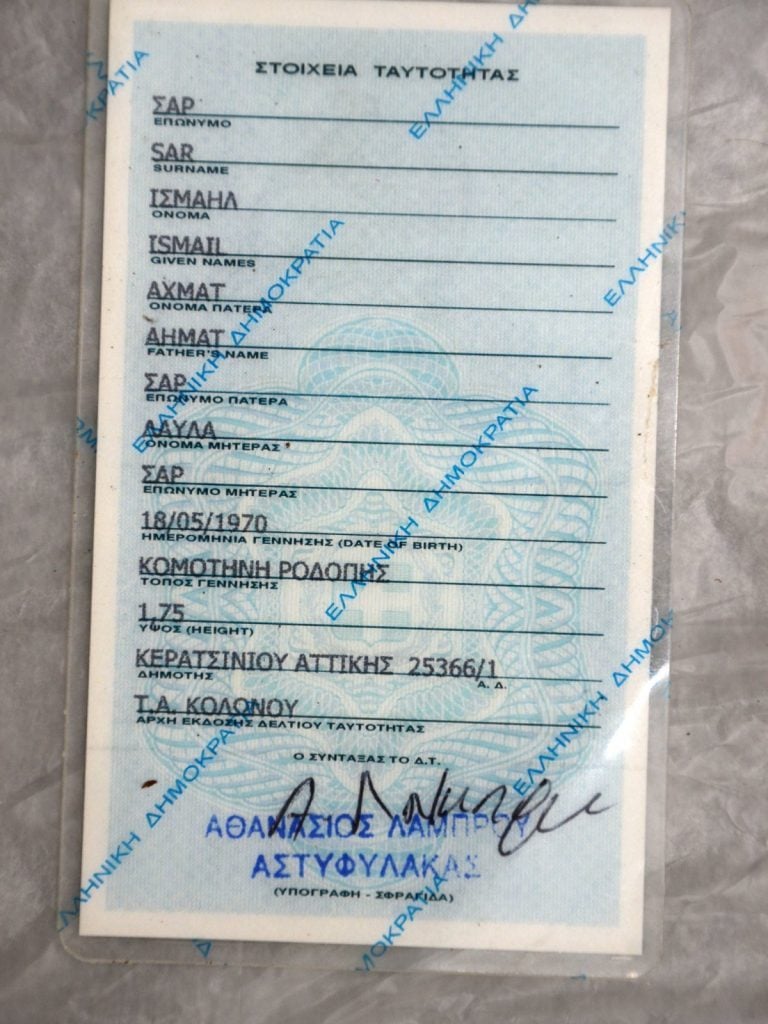 ΣΤΟΙΧΕΙΑ ΤΑΥΤΟΤΗΤΑΣ
ΣΑΡ
ΕΠΩΝΥΜΟ
SAR
SURNAME
ΙΣΜΑΗΛ
ΟΝΟΜΑ
ISMAIL
GIVEN NAMES
ΑΧΜΑΤ
ΟΝΟΜΑ ΠΑΤΕΡΑ
AHMAT
FATHER'S NAME
ΣΑΡ
ΕΠΩΝΥΜΟ ΠΑΤΕΡΑ
ΟΝΟΜΑ ΜΗΤΕΡΑΣ
ΣΑΡ
ΕΠΩΝΥΜΟ ΜΗΤΕΡΑΣ
18/05/1970
ΗΜΕΡΟΜΗΝΙΑ ΓΕΝΝΗΣΗΣ (DATE OF BIRTH)
ΚΟΜΟΤΗΝΗ ΡΟΔΟΠΗΣ
ΤΟΠΟΣ ΓΕΝΝΗΣΗΣ
1,75
ΥΨΟΣ (HEIGHT)
ΚΕΡΑΤΣΙΝΙΟΥ ΑΤΤΙΚΗΣ 25366/1
ΔΗΜΟΤΗΣ Α. Δ.
Τ.Α. ΚΟΛΩΝΟΥ
ΑΡΧΗ ΕΚΔΟΣΗΣ ΔΕΛΤΙΟΥ ΤΑΥΤΟΤΗΤΑΣ
Ο ΣΥΝΤΑΞΑΣ ΤΟ Δ.Τ.
ΑΘΑΝΑΣΙΟΣ ΛΑΜΠΡΟΥ
ΑΣΤΥΦΥΛΑΚΑΣ
(ΥΠΟΓΡΑΦΗ - ΣΦΡΑΓΙΔΑ)
ΕΛΛΗΝΙΚΗ ΔΗΜΟΚΡΑΤΙΑ
ΕΛΛΗΝΙΚΗ ΔΗΜΟΚΡΑΤΙΑ
ΕΛΛΗΝΙΚΗ ΔΗΜΟΚΡΑΤΙΑ